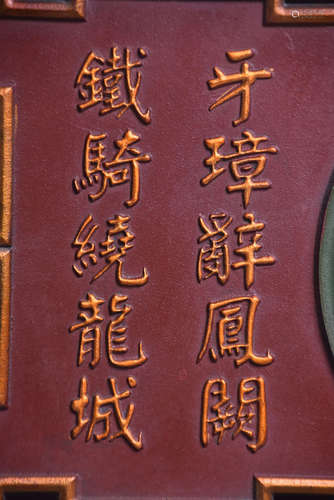 牙璋辭鳳闕
鐵騎繞龍城